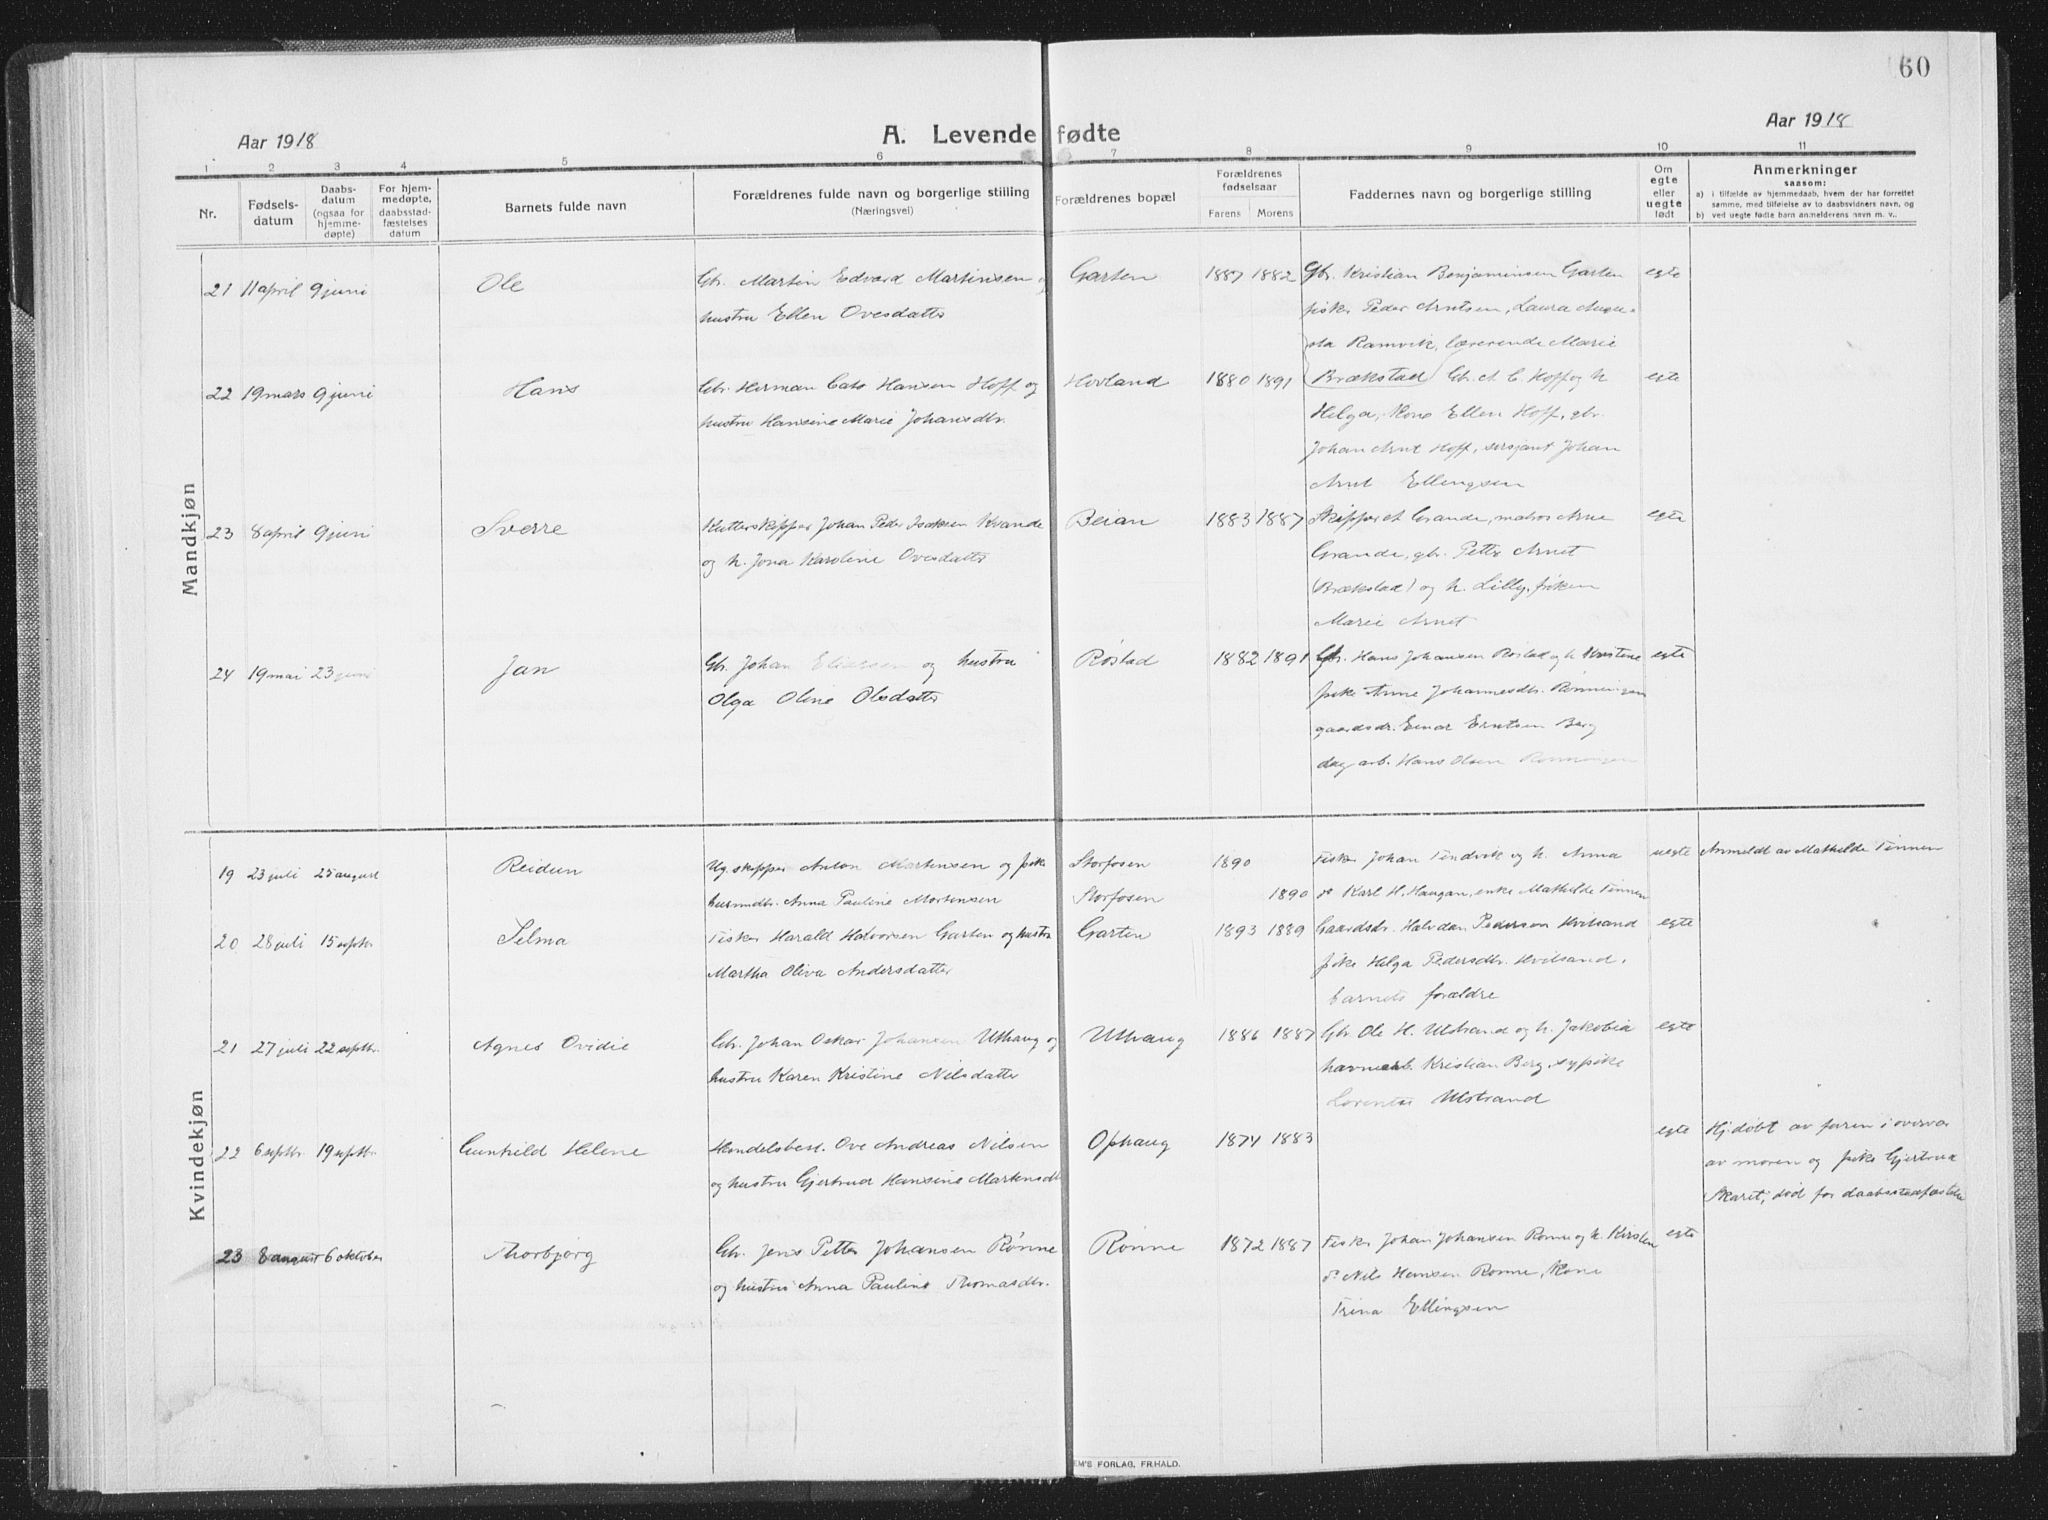 60
Aar 1918
A. Levendefødte
Aar 1918
1 2 3 4 5 6 7 8 9 10 11
Nr.
Fødsels-
datum
Daabs-
datum
(ogsaa for
hjemme-
døpte)
For hjem-
medøpte,
daabsstad-
fæstelses
datum
Barnets fulde navn
Forældrenes fulde navn og borgerlige stilling
(Næringsvei)
Forældrenes bopæl
Forældrenes
fødselsaar
Farens Morens
Faddernes navn og borgerlige stilling
Om
egte
eller
uegte
født
Anmerkninger
saasom:
a) i tilfælde av hjemmedaab, hvem der har forrettet
samme, med tilføielse av to daabsvidners navn, og
b) ved uegte fødte barn anmelderens navn m. v..
Mandkjøn
21 11 april 9 juni Ole Gbr. Martin Edvard Martinsen og Garten 1887 1882 Gbr. Kristian Benjaminsen Garten egte
hustru Ellen Ovesdatter fisker Peder Arntsen, Laura Augu-
sta Ramvik, lærerinde Marie
22 19 mars 9 juni Hans Gbr. Herman Cato Hansen Hoff og Hovland 1880 1891 (Brækstad) Gbr. A. C. Hoff og h. egte
hustru Hansine Marie Johansdtr. Helga, Kone Ellen Hoff, gbr.
Johan Arnt Hoff, sersjant Johan
Arnt Ellingsen
23 8 april 9 juni Sverre Kutterskipper Johan Peder Isaksen Kvande Beian 1883 1887 Skipper A. Grande, matros Arne egte
og h. Jona Karoline Ovesdatter Grande, gbr. Petter Arnet
(Brækstad) og h. Lilly, frøken
Marie Arnet
24 19 mai 23 juni Jan Gbr. Johan Eliassen og hustru Røstad 1882 1891 Gbr. Hans Johansen Røstad og h. Kristine egte
Olga Oline Olsdatter pike Anne Johannesdtr. Rønningen
gaardsdr. Einar Erntsen Berg
dag arb. Hans Olsen Rønningen
Kvindekjøn
19 23 juli 25 august Reidun Ug. skipper Anton Martinsen og pike Storfosen 1890 Fisker Johan Tindvik og h. Anna uegte Anmeldt av Mathilde Finnen
husmdtr. Anna Pauline Mortensen Storfosen 1890 do Karl H. Haugan, enke Mathilde Finnen
20 28 juli 15 septbr. Selma Fisker Harald Halvorsen Garten og hustru Garten 1893 1889 Gaardsdr. Halvdan Pedersen Hvilsand egte
Martha Oliva Andersdatter pike Helga Pedersdtr. Hvilsand,
barnets forældre
21 27 juli 22 septbr. Agnes Ovidie Gbr. Johan Oskar Johansen Uthaug og Uthaug 1886 1887 Gbr. Ole H. Ulstrand og h. Jakobia egte
hustru Karen Kristine Nilsdatter havnearb. Kristian Berg, sypike
Lorentse Ulstrand
22 6 septbr. 19 septbr. Gunhild Helene Handelsbest. Ove Andreas Nilsen Ophaug 1874 1883 egte Hj.døbt av faren i overvær
og hustru Gjertrud Hansine Martinsdtr. av moren og pike Gjertrud
Skaret, død før daabsstadfæstelse
23 8 august 6 oktober Thorbjørg Gbr. Jens Petter Johansen Rønne Rønne 1872 1887 Fisker Johan Johansen Rønne og h. Kirsten egte
og hustru Anna Pauline Thomasdtr. do Nils Hansen Rønne, Kone
Trina Ellingsen
EM'S FORLAG, FR.HALD.